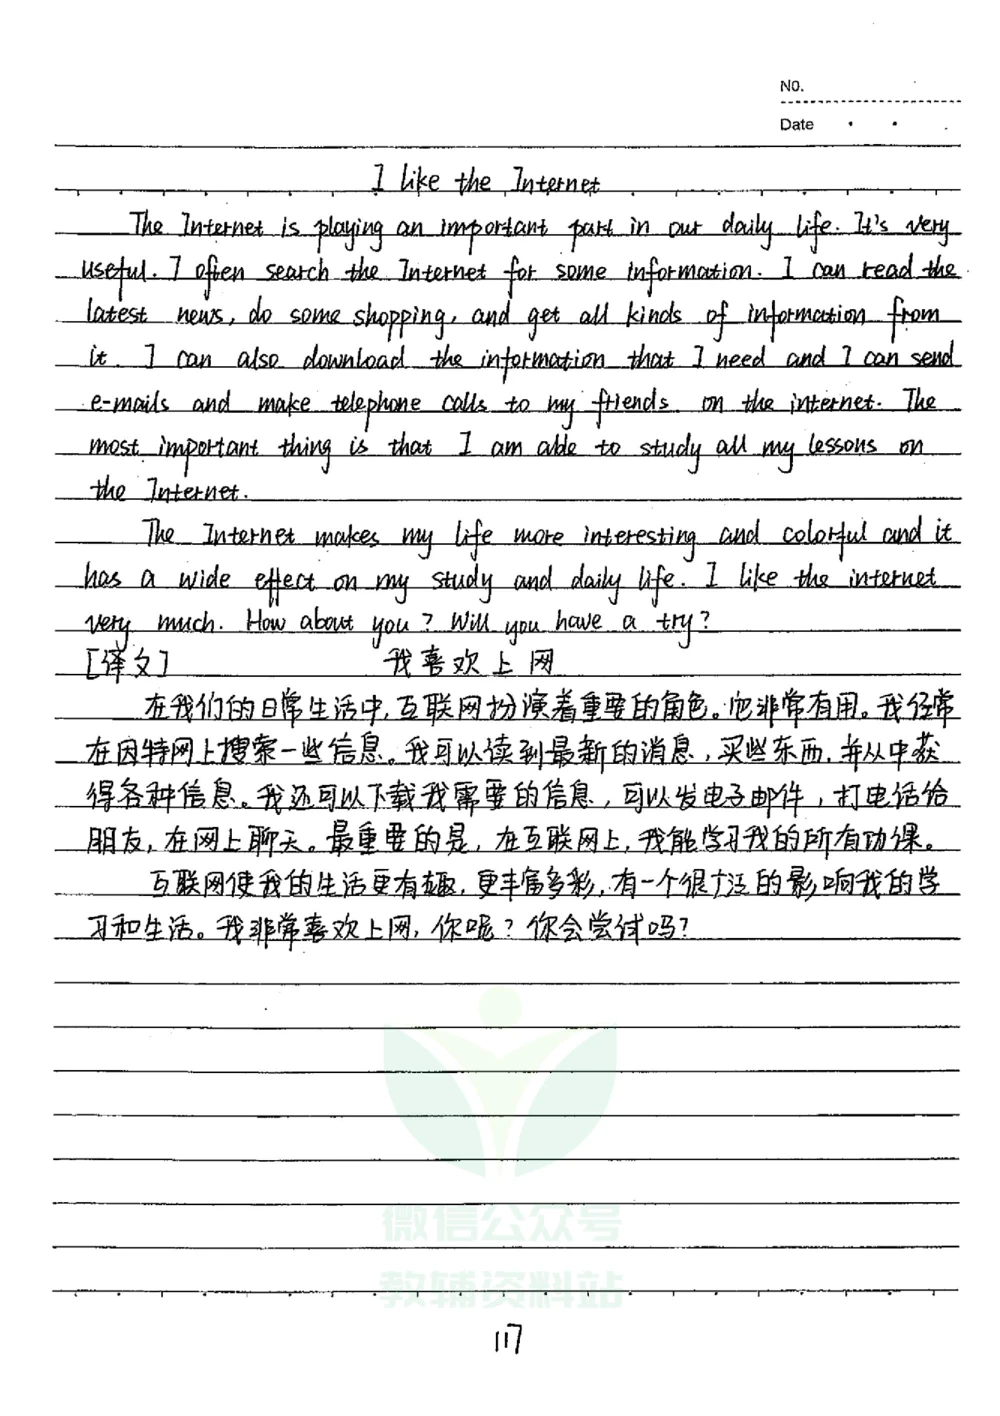 No.
Date
I like the Internet
The Internet is playing an important part in our daily life. It's very
useful. I often search the Internet for some information. I can read the
latest news, do some shopping, and get all kinds of information from
it. I can also download the information that I need and I can send
e-mails and make telephone calls to my friends on the internet. The
most important thing is that I am able to study all my lessons on
the Internet.
The Internet makes my life more interesting and colorful and it
has a wide effect on my study and daily life. I like the internet
very much. How about you? Will you have a try?
[译文] 我喜欢上网
在我们的日常生活中,互联网扮演着重要的角色。它非常有用。我经常
在因特网上搜索一些信息。我可以读到最新的消息,买些东西,并从中获
得各种信息。我还可以下载我需要的信息,可以发电子邮件,打电话给
朋友,在网上聊天。最重要的是,在互联网上,我能学习我的所有功课。
互联网使我的生活更有趣,更丰富多彩,有一个很广泛的影响我的学
习和生活。我非常喜欢上网,你呢?你会尝试吗?
微信公众号
教辅资料站
117